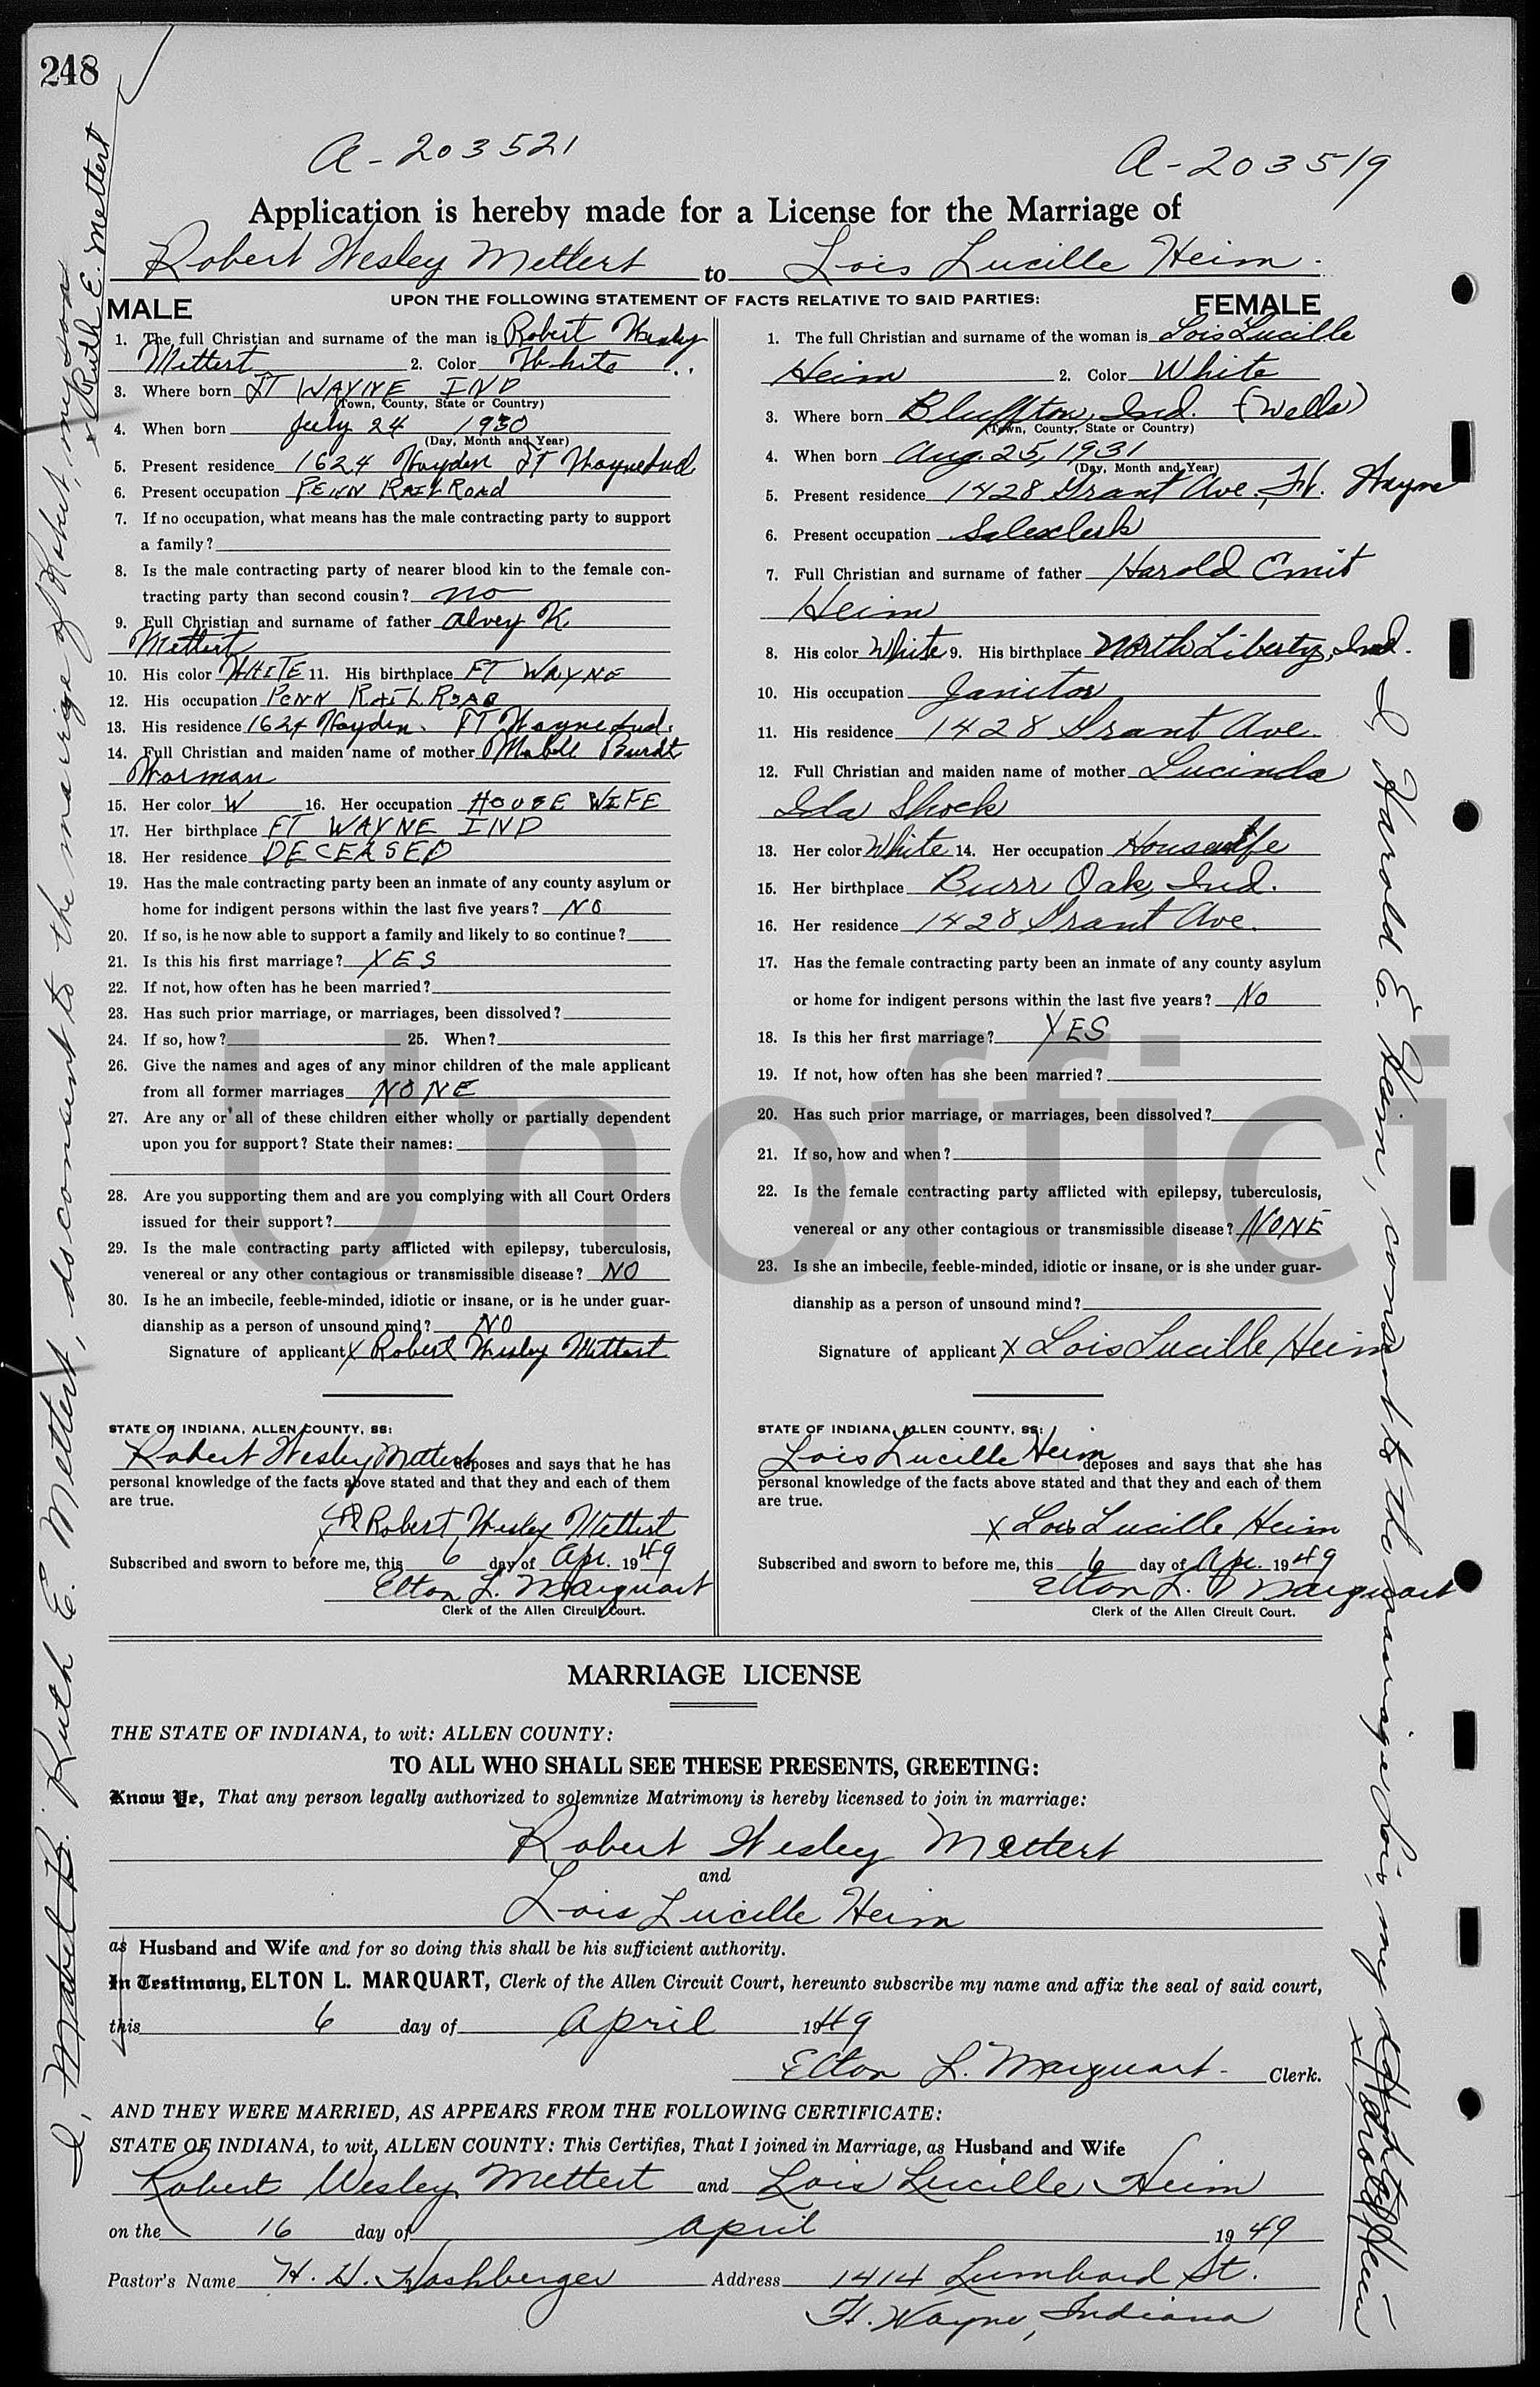 248
A-203521
A-203519
Application is hereby made for a License for the Marriage of
Robert Wesley Mettert to Lois Lucille Heim.
UPON THE FOLLOWING STATEMENT OF FACTS RELATIVE TO SAID PARTIES:
MALE
1. The full Christian and surname of the man is Robert Wesley
Mettert 2. Color White
3. Where born FT WAYNE IND
(Town, County, State or Country)
4. When born July 24 1930
(Day, Month and Year)
5. Present residence 1624 Hayden FT Wayne Ind
6. Present occupation PENN RAILROAD
7. If no occupation, what means has the male contracting party to support
a family?
8. Is the male contracting party of nearer blood kin to the female con-
tracting party than second cousin? no
9. Full Christian and surname of father Alvey K.
Mettert
10. His color WHITE 11. His birthplace FT WAYNE
12. His occupation PENN RAILROAD
13. His residence 1624 Hayden. FT Wayne Ind.
14. Full Christian and maiden name of mother Mabell
Worman
15. Her color W 16. Her occupation HOUSE WIFE
17. Her birthplace FT WAYNE IND
18. Her residence DECEASED
19. Has the male contracting party been an inmate of any county asylum or
home for indigent persons within the last five years? NO
20. If so, is he now able to support a family and likely to so continue?
21. Is this his first marriage? YES
22. If not, how often has he been married?
23. Has such prior marriage, or marriages, been dissolved?
24. If so, how? 25. When?
26. Give the names and ages of any minor children of the male applicant
from all former marriages NONE
27. Are any or all of these children either wholly or partially dependent
upon you for support? State their names:
28. Are you supporting them and are you complying with all Court Orders
issued for their support?
29. Is the male contracting party afflicted with epilepsy, tuberculosis,
venereal or any other contagious or transmissible disease? NO
30. Is he an imbecile, feeble-minded, idiotic or insane, or is he under guar-
dianship as a person of unsound mind? NO
Signature of applicant X Robert Wesley Mettert
STATE OF INDIANA, ALLEN COUNTY, SS:
Robert Wesley Mettert deposes and says that he has
personal knowledge of the facts above stated and that they and each of them
are true.
X Robert Wesley Mettert
Subscribed and sworn to before me, this 6 day of Apr. 1949
Elton L. Marquart
Clerk of the Allen Circuit Court.
FEMALE
1. The full Christian and surname of the woman is Lois Lucille
Heim 2. Color White
3. Where born Bluffton, Ind. (Wells)
(Town, County, State or Country)
4. When born Aug. 25, 1931
(Day, Month and Year)
5. Present residence 1428 Grant Ave., Ft. Wayne
6. Present occupation Salesclerk
7. Full Christian and surname of father Harold Emit
Heim
8. His color White 9. His birthplace North Liberty, Ind.
10. His occupation Janitor
11. His residence 1428 Grant Ave.
12. Full Christian and maiden name of mother Lucinda
Ida Shock
13. Her color White 14. Her occupation Housewife
15. Her birthplace Burr Oak, Ind.
16. Her residence 1428 Grant Ave.
17. Has the female contracting party been an inmate of any county asylum
or home for indigent persons within the last five years? No
18. Is this her first marriage? YES
19. If not, how often has she been married?
20. Has such prior marriage, or marriages, been dissolved?
21. If so, how and when?
22. Is the female contracting party afflicted with epilepsy, tuberculosis,
venereal or any other contagious or transmissible disease? NONE
23. Is she an imbecile, feeble-minded, idiotic or insane, or is she under guar-
dianship as a person of unsound mind?
Signature of applicant X Lois Lucille Heim
STATE OF INDIANA, ALLEN COUNTY, SS:
Lois Lucille Heim deposes and says that she has
personal knowledge of the facts above stated and that they and each of them
are true.
X Lois Lucille Heim
Subscribed and sworn to before me, this 6 day of Apr. 1949
Elton L. Marquart
Clerk of the Allen Circuit Court.
MARRIAGE LICENSE
THE STATE OF INDIANA, to wit: ALLEN COUNTY:
TO ALL WHO SHALL SEE THESE PRESENTS, GREETING:
Know Ye, That any person legally authorized to solemnize Matrimony is hereby licensed to join in marriage:
Robert Wesley Mettert
and
Lois Lucille Heim
as Husband and Wife and for so doing this shall be his sufficient authority.
In Testimony, ELTON L. MARQUART, Clerk of the Allen Circuit Court, hereunto subscribe my name and affix the seal of said court,
this 6 day of April 1949
Elton L. Marquart Clerk.
AND THEY WERE MARRIED, AS APPEARS FROM THE FOLLOWING CERTIFICATE:
STATE OF INDIANA, to wit, ALLEN COUNTY: This Certifies, That I joined in Marriage, as Husband and Wife
Robert Wesley Mettert and Lois Lucille Heim
on the 16 day of April 1949
Pastor's Name H. H. Address 1414 Lumbard St.
Ft. Wayne, Indiana
I, Mabel B. Ruth E. Mettert, do consent to the marriage of Robert, my son
X Ruth E. Mettert
I, Harold E. Heim, consent to the marriage of Lois, my daughter
X Harold E. Heim
Unofficia